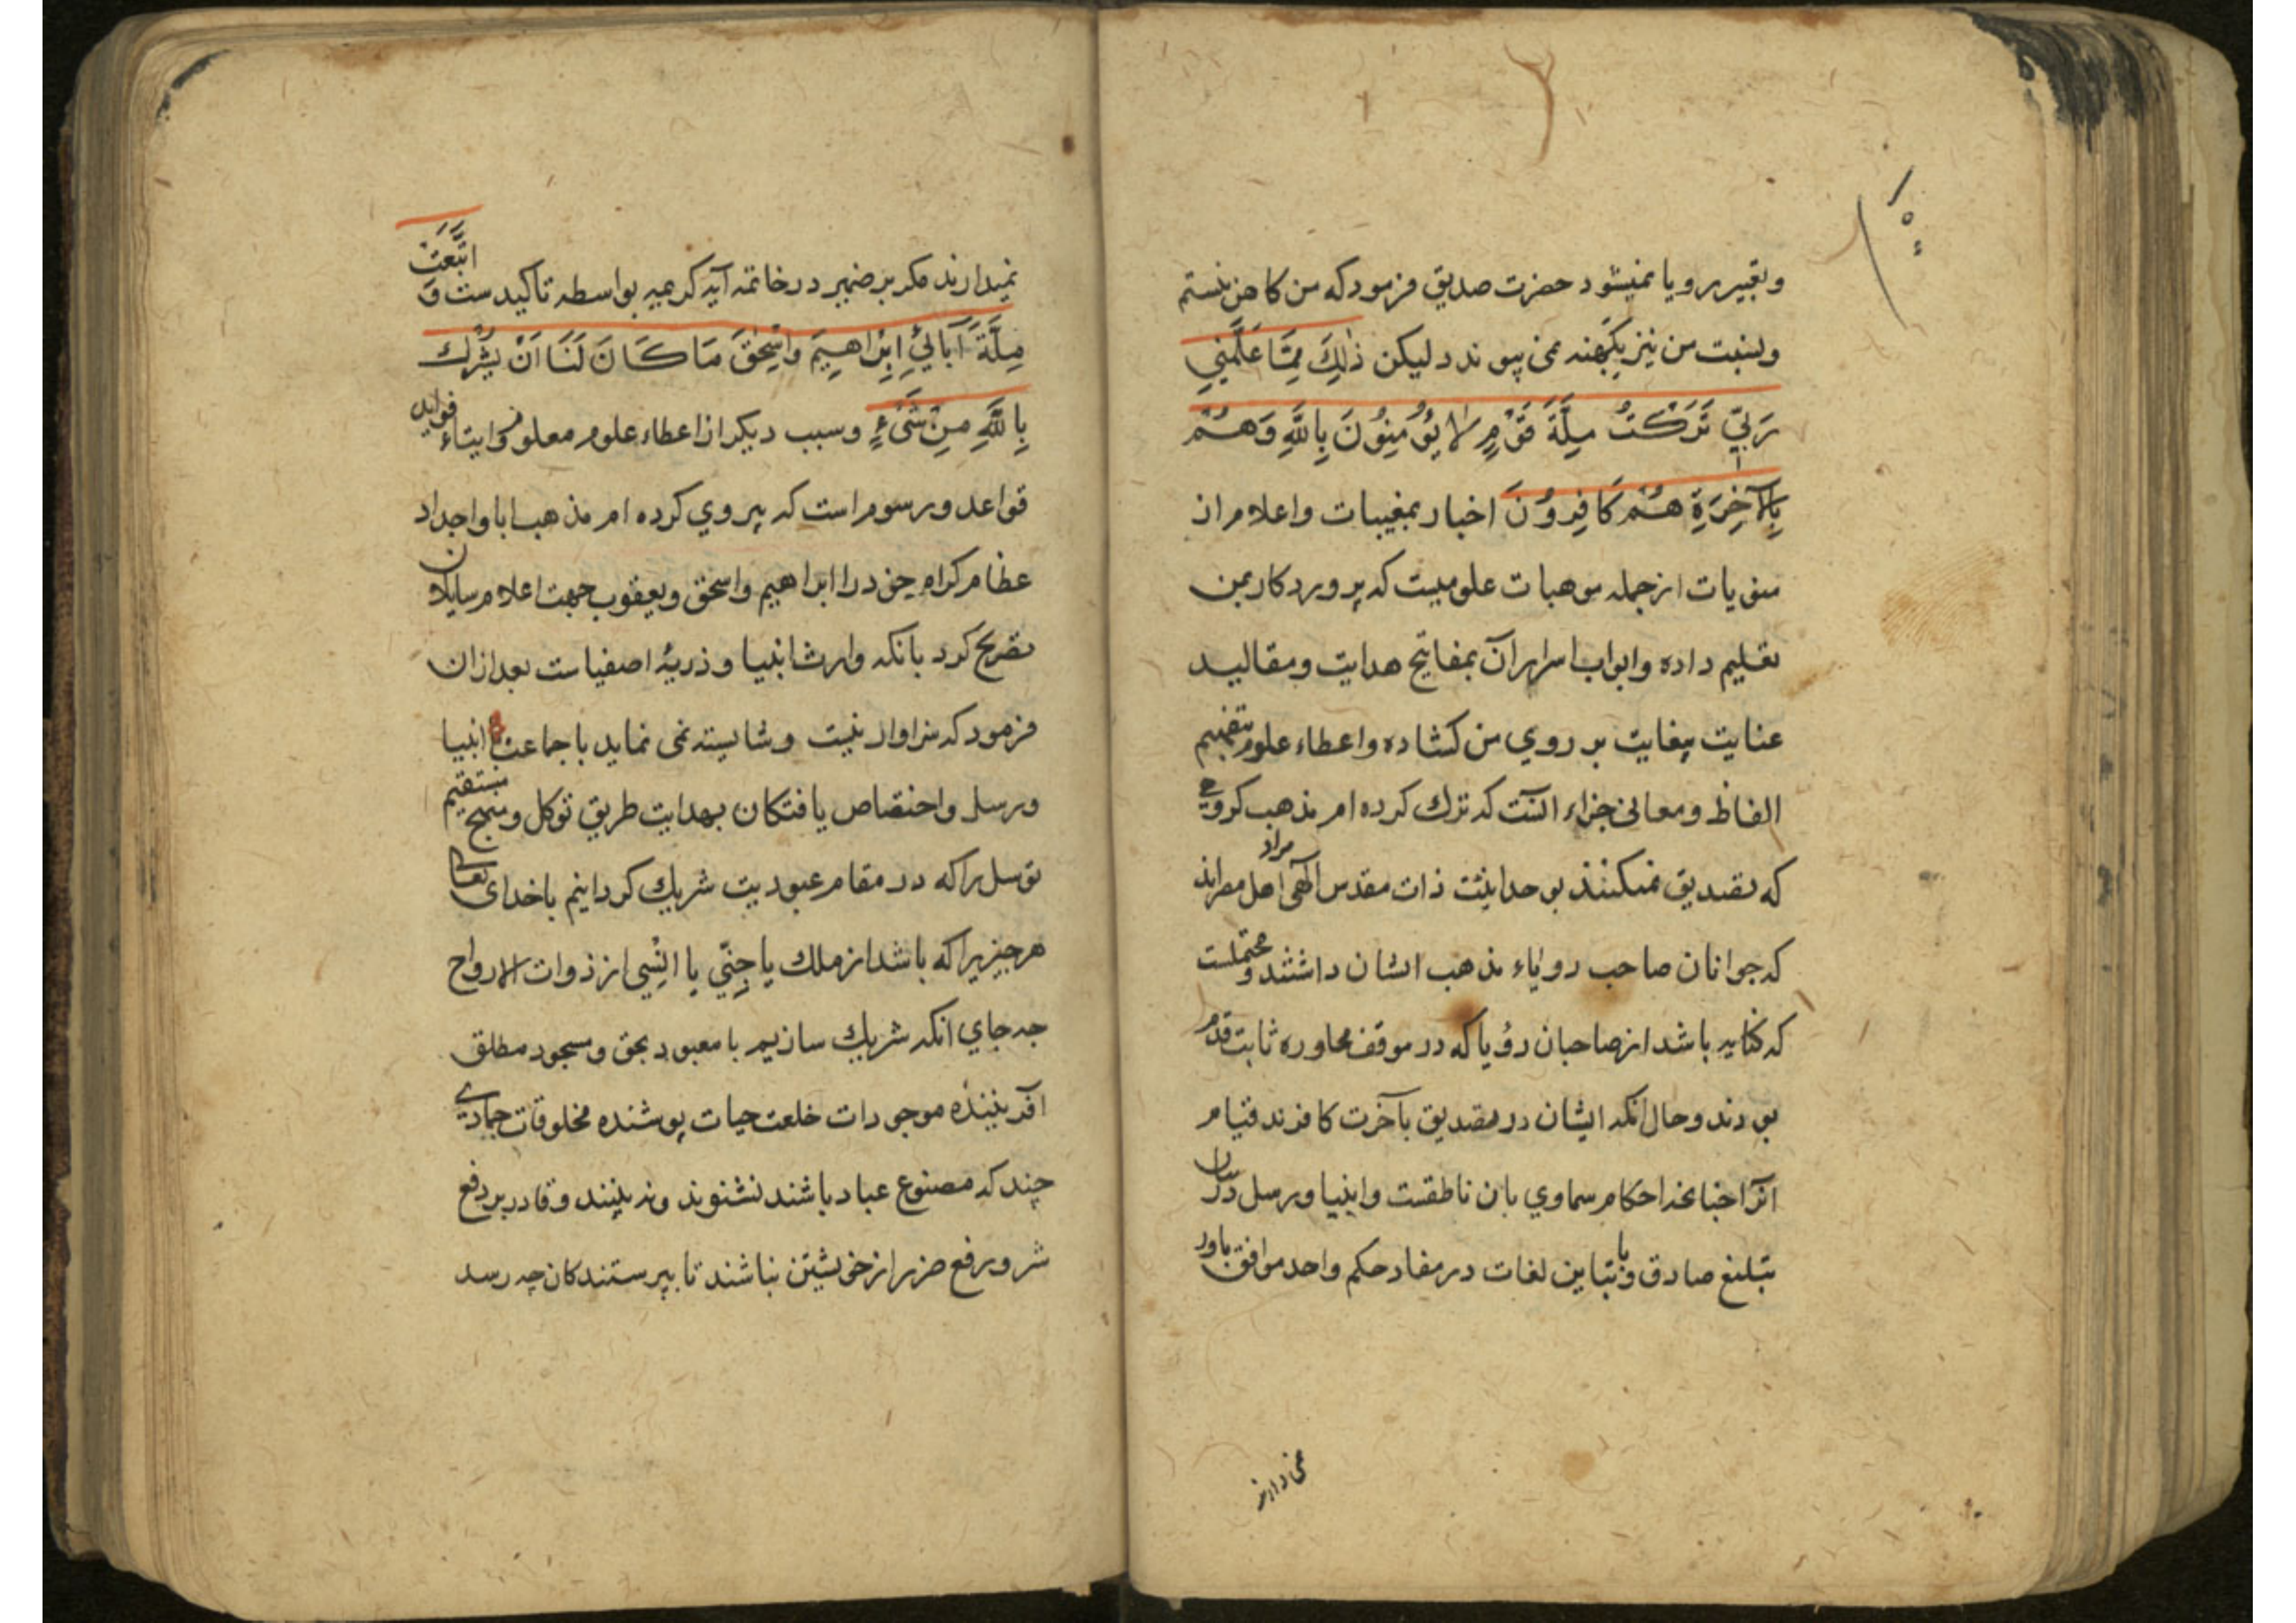 وتعبیر رویا نمیشود حضرت صدیق فرمود که من کاهن نیستم
ونسبت من نیز بکهنه نمی پیوندد لیکن ذٰلِكَ مِمَّا عَلَّمَنِي
رَبِّي تَرَكْتُ مِلَّةَ قَوْمٍ لَا يُؤْمِنُونَ بِاللَّهِ وَهُمْ
بِالْآخِرَةِ هُمْ كَافِرُونَ اخبار بمغیبات واعلام از
منویات از جمله موهبات علومیست که پروردکار بمن
تعلیم داده وابواب اسرار آن بمفاتیح هدایت ومقالید
عنایت بیغایت بر روي من کشاده واعطاء علوم بتفهیم
الفاظ ومعانی جزاء آنست که ترك کرده ام مذهب کروهي
که تصدیق نمیکنند بوحدانیت ذات مقدس الٓهی مراد اهل مصراند
که جوانان صاحب رویاء مذهب ایشان داشتند ومحتملست
که کنایه باشد از صاحبان رؤیا که در موقف محاوره ثابت قدم
بودند وحال آنکه ایشان در تصدیق بآخرت کافرند قیام
احکام سماوي بان ناطقست وانبیا ورسل دران
بتبلیغ صادق وبا تباین لغات در مفاد حکم واحد موافق باور
نمی دارند
نمیدارند مکرر ضمیر در خاتمه آیه کریمه بواسطه تاکیدست وَاتَّبَعْتُ
مِلَّةَ آبَائِي إِبْرَاهِيمَ وَاسْحٰقَ مَا كَانَ لَنَا اَنْ نُشْرِكَ
بِاللَّهِ مِنْ شَيْءٍ وسبب دیکر از اعطاء علوم معلوم وایتاء فواید
قواعد ورسوم است که پیروي کرده ام مذهب ابا واجداد
عظام کرام خود را ابراهیم واسحق ویعقوب جهت اعلام سایلان
تصریح کرد بانکه وارث انبیا وذریۀ اصفیاست بعد ازان
فرمود که سزاوار نیست وشایسته نمی نماید با جماعت انبیا
ورسل واختصاص یافتکان بهدایت طریق توکل ومنهج مستقیم
توسل را که در مقام عبودیت شریك کردانیم باخدای تعالی
هر چیزیرا که باشد از ملك یا جِنّي یا اِنْسِي از ذوات الارواح
چه جاي انکه شریك سازیم با معبود بحق ومسجود مطلق
آفریننده موجودات خلعت حیات پوشنده مخلوقات جمادي
چند که مصنوع عباد باشند نشنوند ونه بینند وقادر بر دفع
شر ورفع ضرر از خویشتن نباشند تا بپرستندکان چه رسد